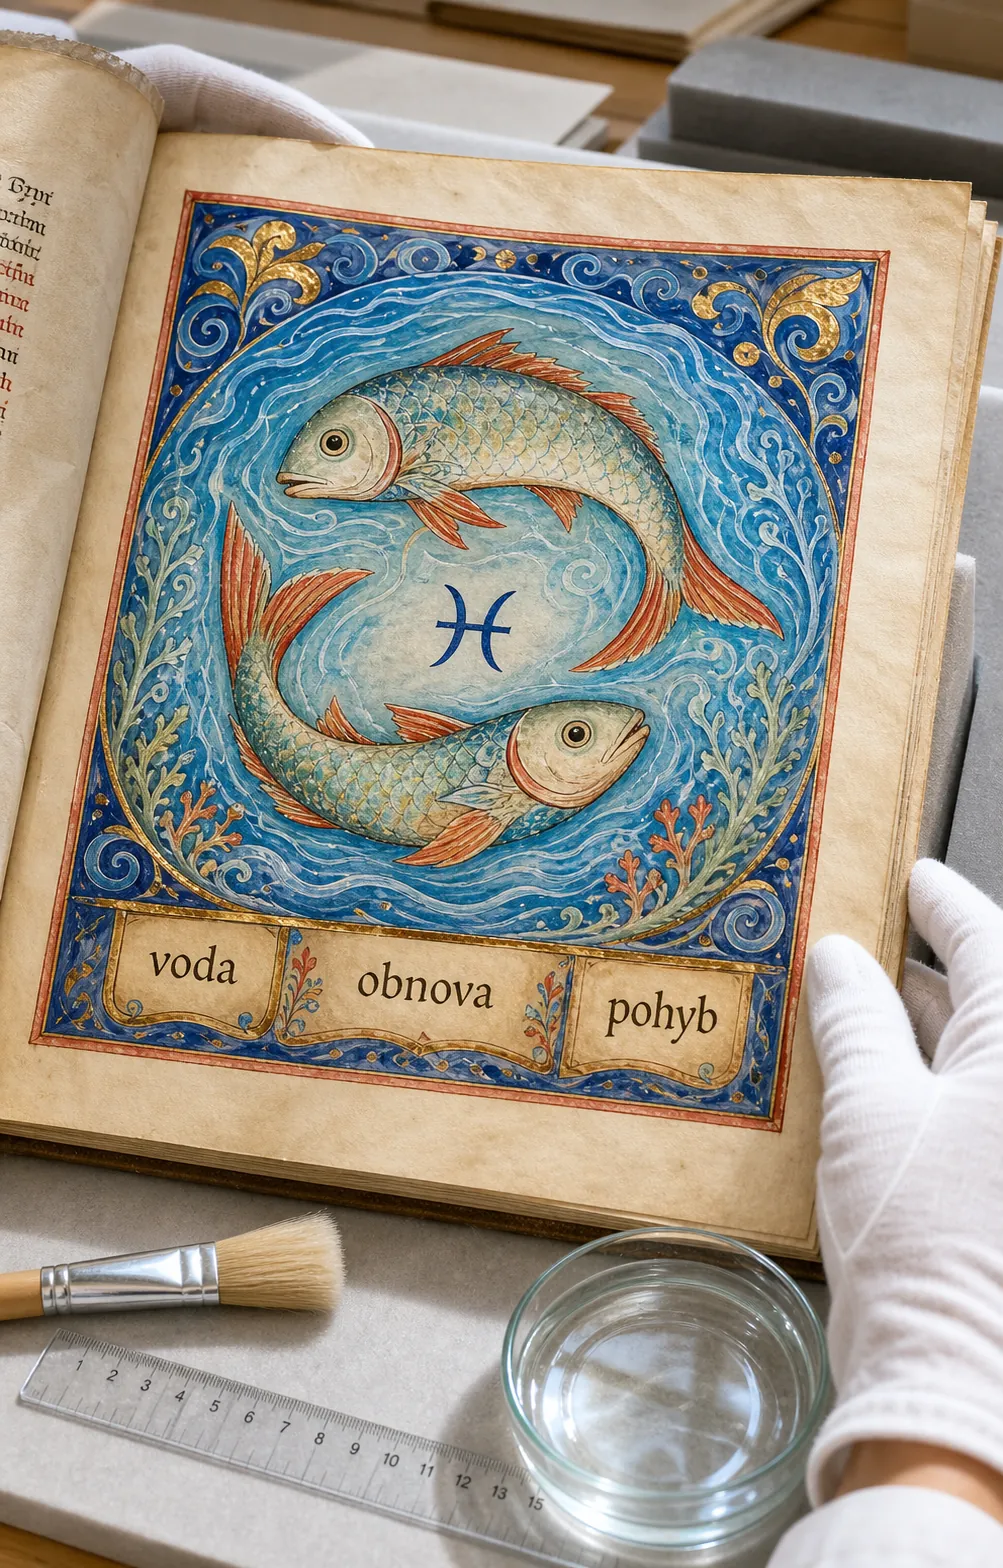 ♓
voda
obnova
pohyb
1 2 3 4 5 6 7 8 9 10 11 12 13 15